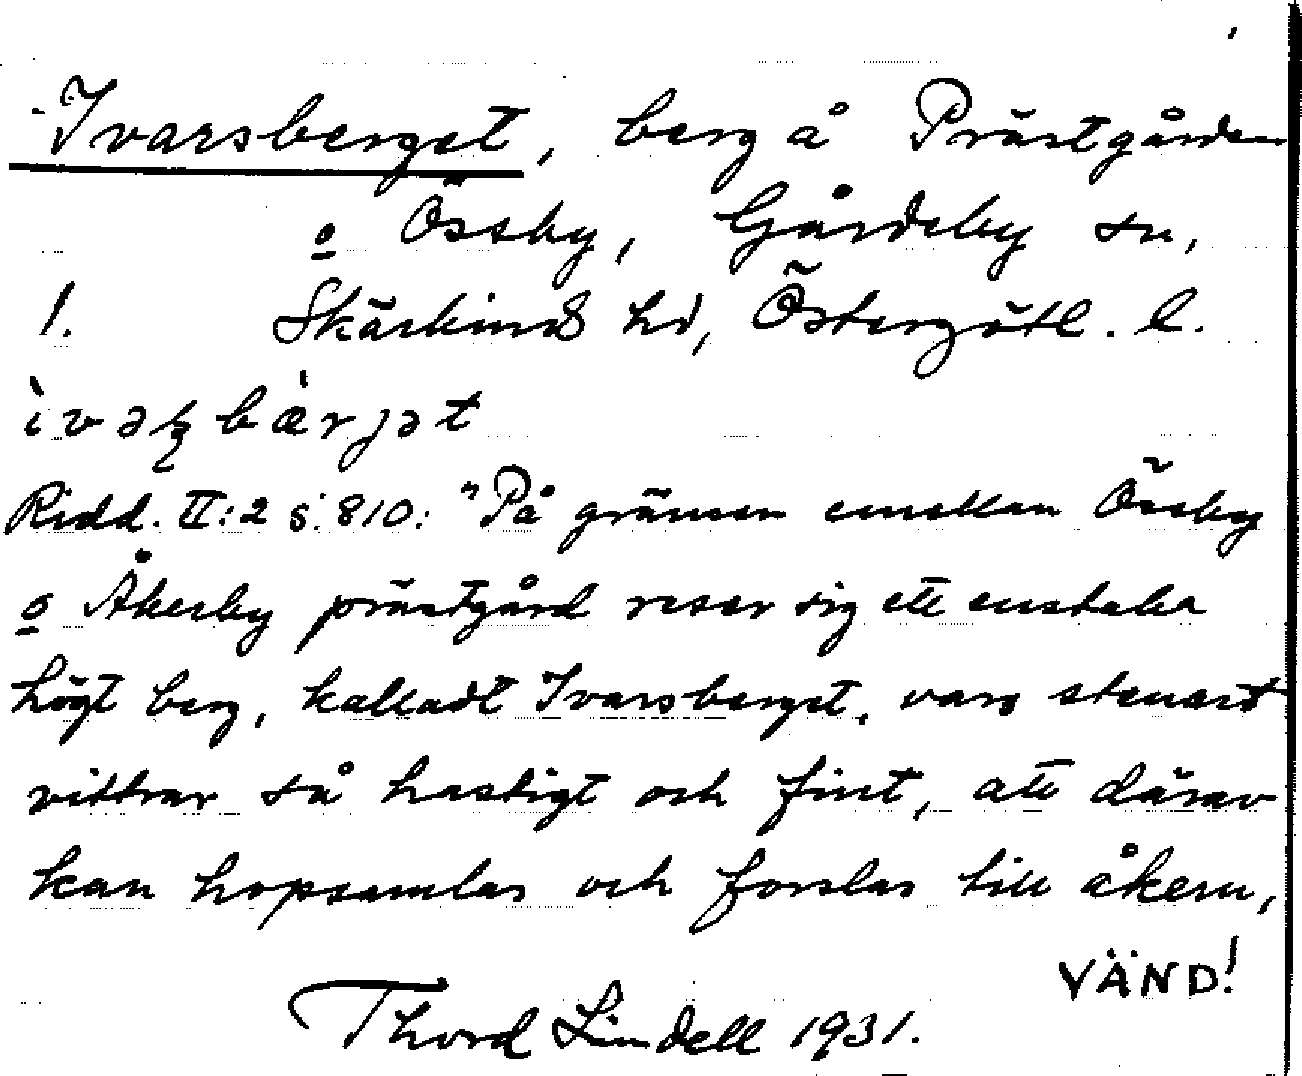 Ivarsberget, berg å Prästgården
o Össby, Gårdeby sn,
1. Skärkinds hd, Östergötl. l.
ìvaʂbæ̀rjət
Ridd. II:2 s. 810: "På gränsen emellan Össby
o Åkerby prästgård reser sig ett enstaka
högt berg, kalladt Ivarsberget, vars stenart
vittrar så hastigt och fint, att därav
kan hopsamlas och forslas till åkern,
VÄND!
Thord Lindell 1931.